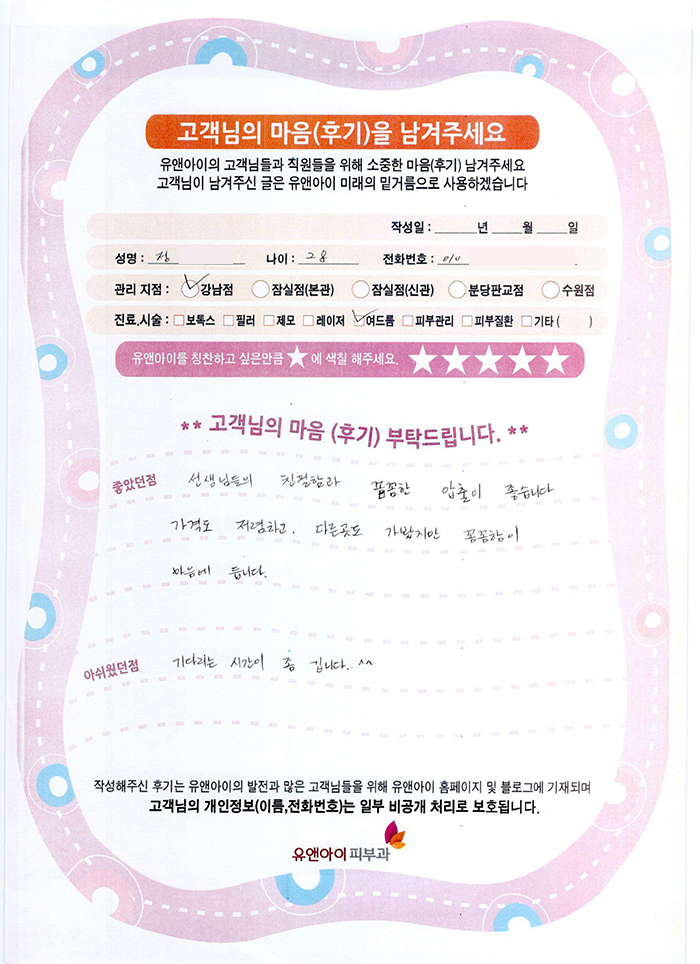 고객님의 마음(후기)을 남겨주세요
유앤아이의 고객님들과 직원들을 위해 소중한 마음(후기) 남겨주세요
고객님이 남겨주신 글은 유앤아이 미래의 밑거름으로 사용하겠습니다
작성일 : 년 월 일
성명 : 정 나이 : 28 전화번호 : 010
관리 지점 : 강남점 잠실점(본관) 잠실점(신관) 분당판교점 수원점
진료.시술 : 보톡스 필러 제모 레이저 여드름 피부관리 피부질환 기타 ( )
유앤아이를 칭찬하고 싶은만큼 ★ 에 색칠 해주세요. ★★★★★
** 고객님의 마음 (후기) 부탁드립니다. **
좋았던점 선생님들의 친절함과 꼼꼼한 압출이 좋습니다
가격도 저렴하고. 다른곳도 가봤지만 꼼꼼함이
마음에 듭니다.
아쉬웠던점 기다리는 시간이 좀 깁니다.. ^^
작성해주신 후기는 유앤아이의 발전과 많은 고객님들을 위해 유앤아이 홈페이지 및 블로그에 기재되며
고객님의 개인정보(이름,전화번호)는 일부 비공개 처리로 보호됩니다.
유앤아이피부과